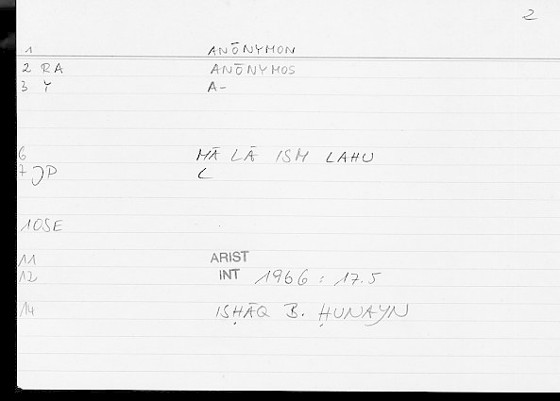 2
1 ANŌNYMON
2 RA ANŌNYMOS
3 Y A-
6 MĀ LĀ ISM LAHU
7 JP L
10SE
11 ARIST
12 INT 1966 : 17.5
14 ISḤĀQ B. ḤUNAYN